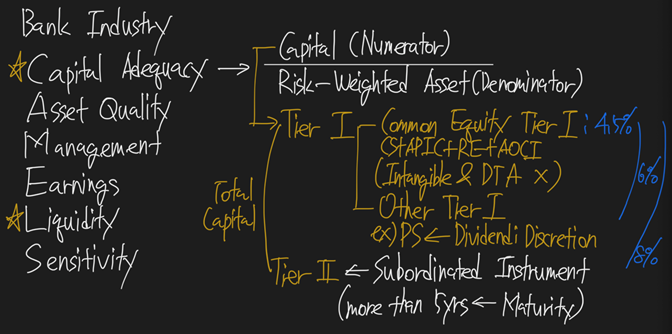 Bank Industry
☆ Capital Adequacy → Capital (Numerator)
Risk-Weighted Asset (Denominator)
Asset Quality
Management
Earnings
☆ Liquidity
Sensitivity
Total Capital
Tier I
Common Equity Tier I : 4.5%
CS+APIC+RE+AOCI
(Intangible & DTA X)
Other Tier I
ex) PS ← Dividend: Discretion
6%
Tier II ← Subordinated Instrument
(more than 5yrs ← Maturity)
8%